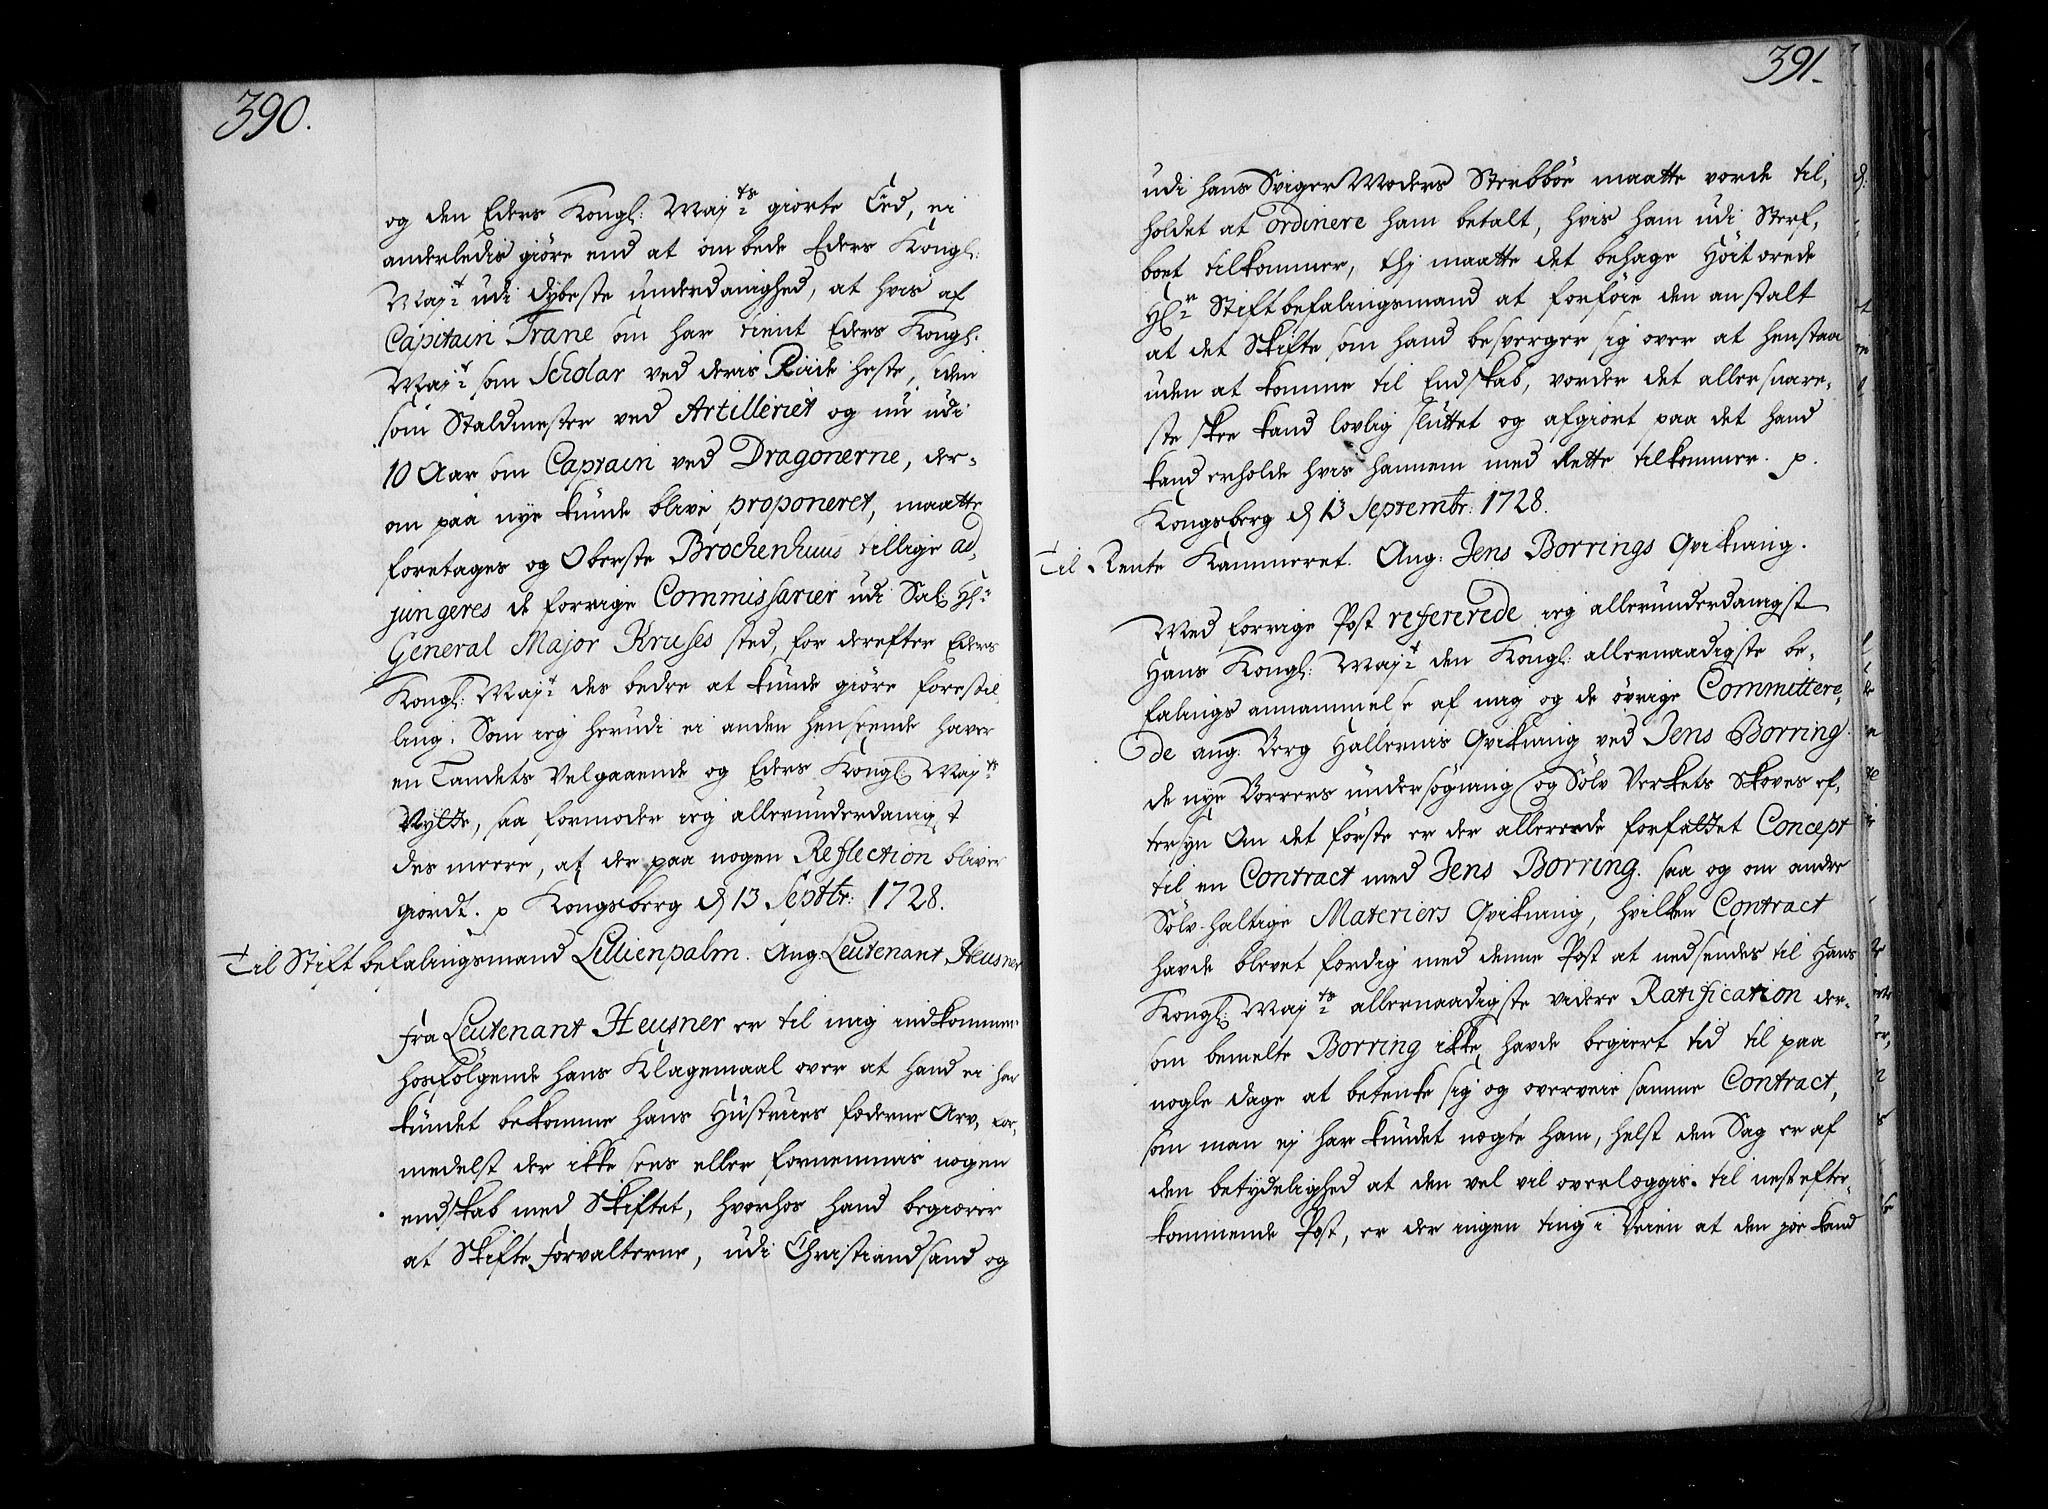 390.
og den Eders Kongl: Maj:ts giorte Eed, ei
anderledis giöre end at ombede Eders Kongl:
Maj:t udi dybeste underdanighed, at hvis af
Capitain Trane som har tient Eders Kongl.
Maj:t som Scholar ved deris Riide heste, siden
som Staldmester ved Artilleriet og nu udi
10 Aar som Captain ved Dragonerne, der-
om paa nye kunde blive proponeret, maatte
foretages og Oberste Brochenhuus tillige ad,
jungeres de forrige Commissarier udi Sal: Hr:
General Major Kruses sted, for derefter Eders
Kongl: Maj:t des bedre at kunde giöre forestil,
ling. Som ieg herudi ei anden henseende haver
en Landets Velgaaende og Eders Kongl: Maj:ts
Nytte, saa formoder ieg allerunderdanigst
des meere, at der paa nogen Reflection bliver
giordt. p Kongsberg d 13 Septbr: 1728.
Til Stiftbefalingsmand Lillienpalm. Ang. Leutenant Heusner
Fra Leutenant Heusner er til mig indkommen
hosfölgende hans Klagemaal over at hand ei har
kundet bekomme hans Hustrues fæderne Arv, for,
medelst der ikke sees eller fornemmis nogen
endskab med Skiftet, hvorhos hand begierer
at Skifte Forvalterne, udi Christiandsand og
391.
udi hans Sviger Moders Sterbböe maatte vorde til,
holdet at ordinere ham betalt, hvis ham udi Sterf,
boet tilkommer, thj maatte det behage Höitærede
Hr: Stiftbefalingsmand at forföie den anstalt
at det Skifte som hand besverger sig over at henstaa
uden at komme til Endskab, vorder det allersnare,
ste skee kand lovlig sluttet og afgiort paa det hand
kand erholde hvis hannem med Rette tilkommer. p.
Kongsberg d 13 Septembr: 1728.
Til Rente Kammeret. Ang: Jens Borrings Qvikning.
Med forrige Post refererede ieg allerunderdanigst
Hans Kongl: Maj:t den Kongl: allernaadigste be-
falings annammelse af mig og de övrige Committere,
de ang: Berg Hallernis Qvikning ved Jens Borring
de nye Borrers undersögning og Sölv Verkets Skoves ef,
tersyn An det förste er der allerede forfattet Concept
til en Contract med Jens Borring. saa og om andre
Sölv-haltige Materiers Qvikning, hvilken Contract
havde blevet færdig med denne Post at nedsendes til Hans
Kongl: Maj:ts allernaadigste videre Ratification der-
som bemelte Borring ikke havde begiert tid til paa
nogle dage at betenke sig og overveie samme Contract,
som man ej har kundet nægte ham, helst den Sag er af
den betydelighed at den vel vil overlæggis. til nestefter-
kommende Post, er der ingen ting i Veien at den joe kand